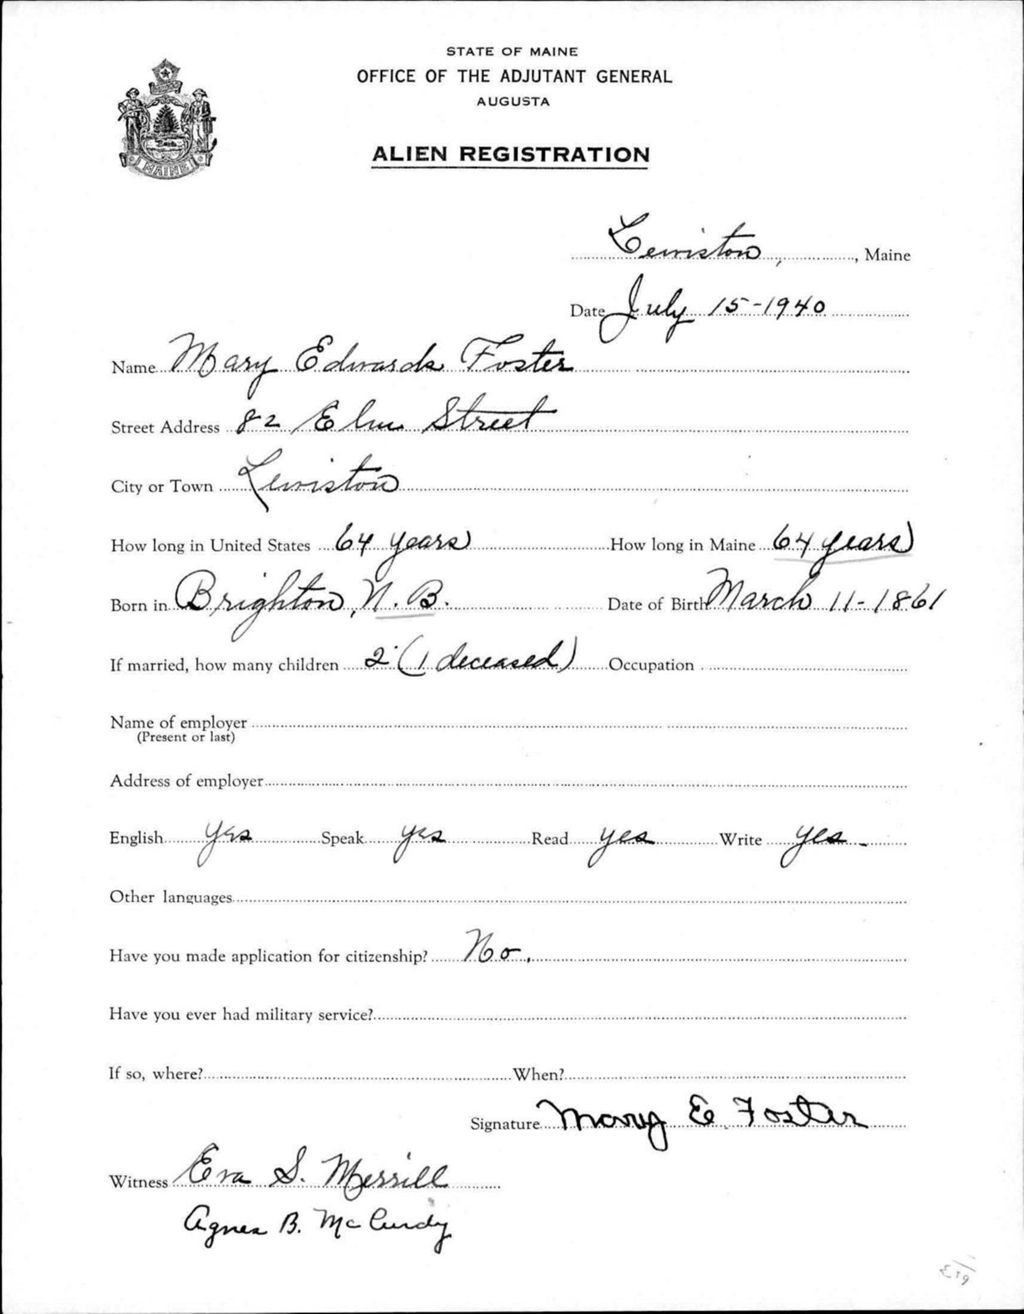 STATE OF MAINE
OFFICE OF THE ADJUTANT GENERAL
AUGUSTA
ALIEN REGISTRATION
MAINE
Lewiston, , Maine
Date July 15-1940
Name Mary Edwards Foster
Street Address 82 Elm Street
City or Town Lewiston
How long in United States 64 years How long in Maine 64 years
Born in Brighton, N. B. Date of Birth March 11-1861
If married, how many children 2 (1 deceased) Occupation
Name of employer
(Present or last)
Address of employer
English yes Speak yes Read yes Write yes
Other languages
Have you made application for citizenship? No.
Have you ever had military service?
If so, where? When?
Signature Mary E. Foster
Witness Eva S. Merrill
Agnes B. McCurdy